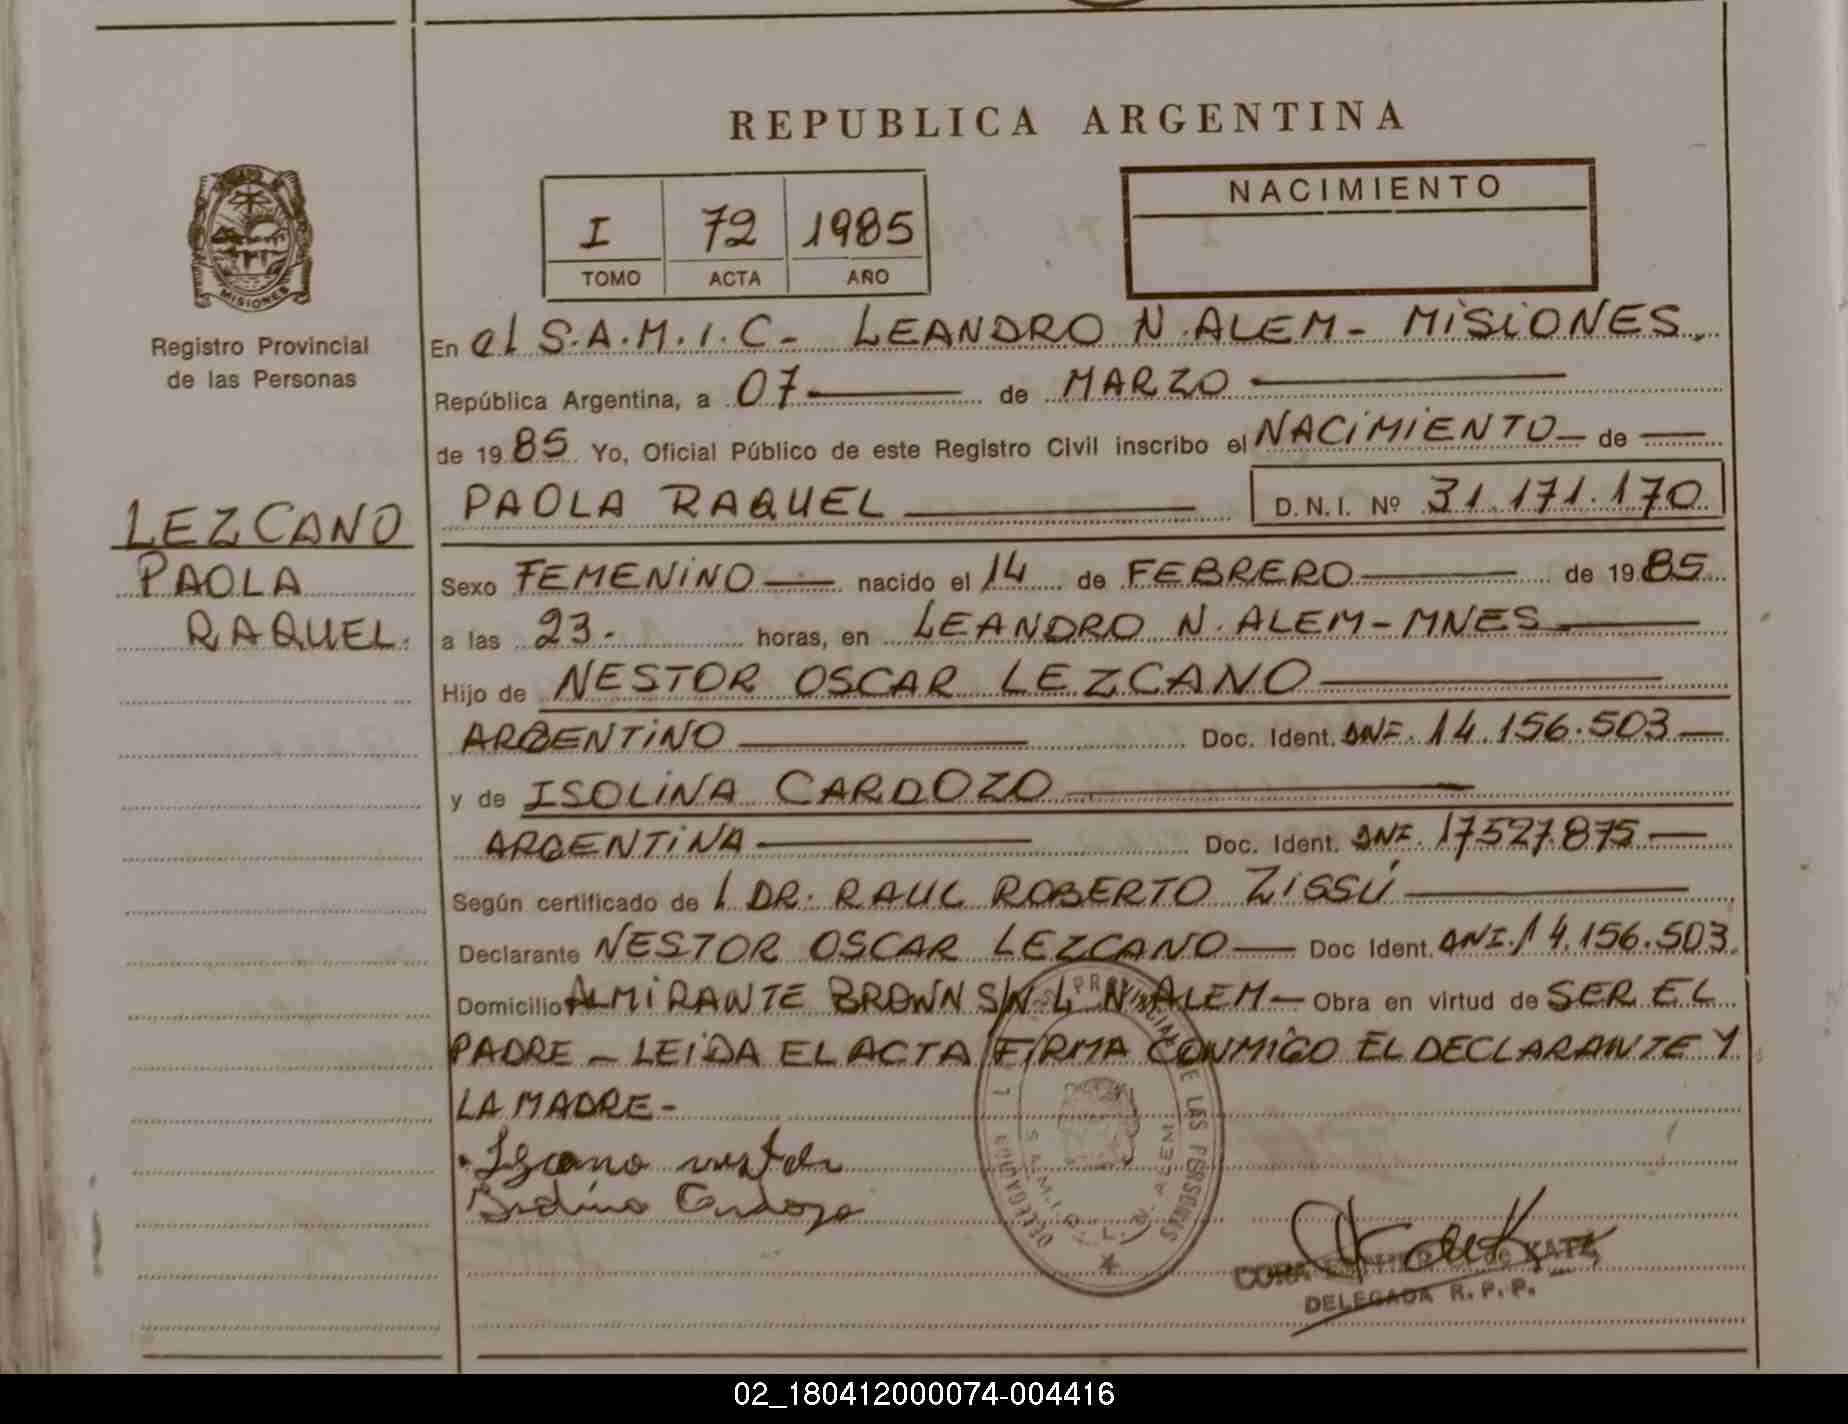 REPUBLICA ARGENTINA
I 72 1985
TOMO ACTA AÑO
NACIMIENTO
MISIONES
Registro Provincial
de las Personas
LEZCANO
PAOLA
RAQUEL.
En el S.A.M.I.C- LEANDRO N.ALEM- MISIONES.
República Argentina, a 07 de MARZO
de 1985 Yo, Oficial Público de este Registro Civil inscribo el NACIMIENTO de
PAOLA RAQUEL D.N.I. Nº 31.171.170
Sexo FEMENINO nacido el 14 de FEBRERO de 1985
a las 23. horas, en LEANDRO N. ALEM-MNES
Hijo de NESTOR OSCAR LEZCANO
ARGENTINO Doc. Ident. DNI. 14.156.503
y de ISOLINA CARDOZO
ARGENTINA Doc. Ident. DNI. 17527.875
Según certificado de l DR. RAUL ROBERTO ZISSÚ
Declarante NESTOR OSCAR LEZCANO Doc Ident. DNI. 14.156.503.
Domicilio ALMIRANTE BROWN S/N L N. ALEM- Obra en virtud de SER EL
PADRE - LEIDA EL ACTA FIRMA CONMIGO EL DECLARANTE Y
LA MADRE-
Lezcano nestor
Isolina Cardozo
DE LAS PERSONAS
S.A.M.I.C. L. N. ALEM
DELEGADA R.P.P.
de KATZ
02_180412000074-004416